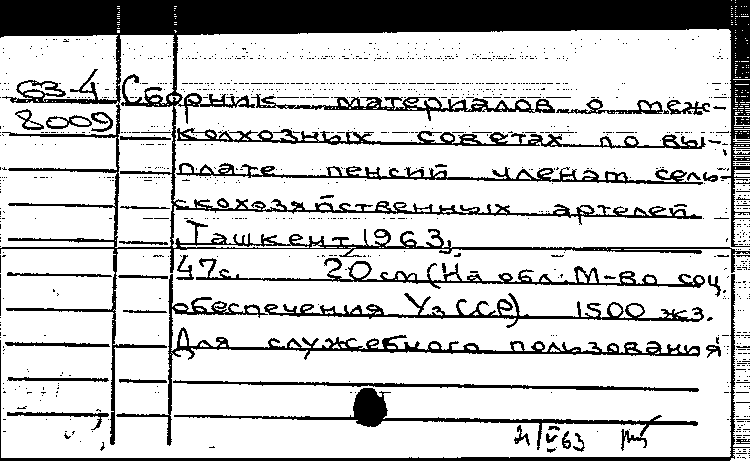 63-4 Сборник материалов о меж-
8009 колхозных советах по вы-
плате пенсий членам сель-
скохозяйственных артелей.
Ташкент, 1963.
47с. 20 см (На обл: М-во соц.
обеспечения Уз ССР). 1500 экз.
Для служебного пользования